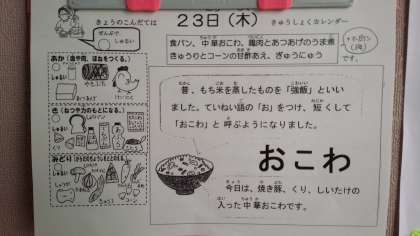 きょうのこんだては
２３日（木）
きゅうしょくカレンダー
ぜんぶで
しゅるい
食パン、中華おこわ、鶏肉とあつあげのうま煮
きゅうりとコーンの甘酢あえ、ぎゅうにゅう
です。
あか(血や肉、ほねをつくる。)
しゅるい
き(ねつや力のもとになる。)
しゅるい
みどり(からだのちょうしをととのえる)
しゅるい
昔、もち米を蒸したものを「強飯」といい
ました。ていねい語の「お」をつけ、短くして
「おこわ」と呼ぶようになりました。
おこわ
今日は、焼き豚、くり、しいたけの
入った中華おこわです。